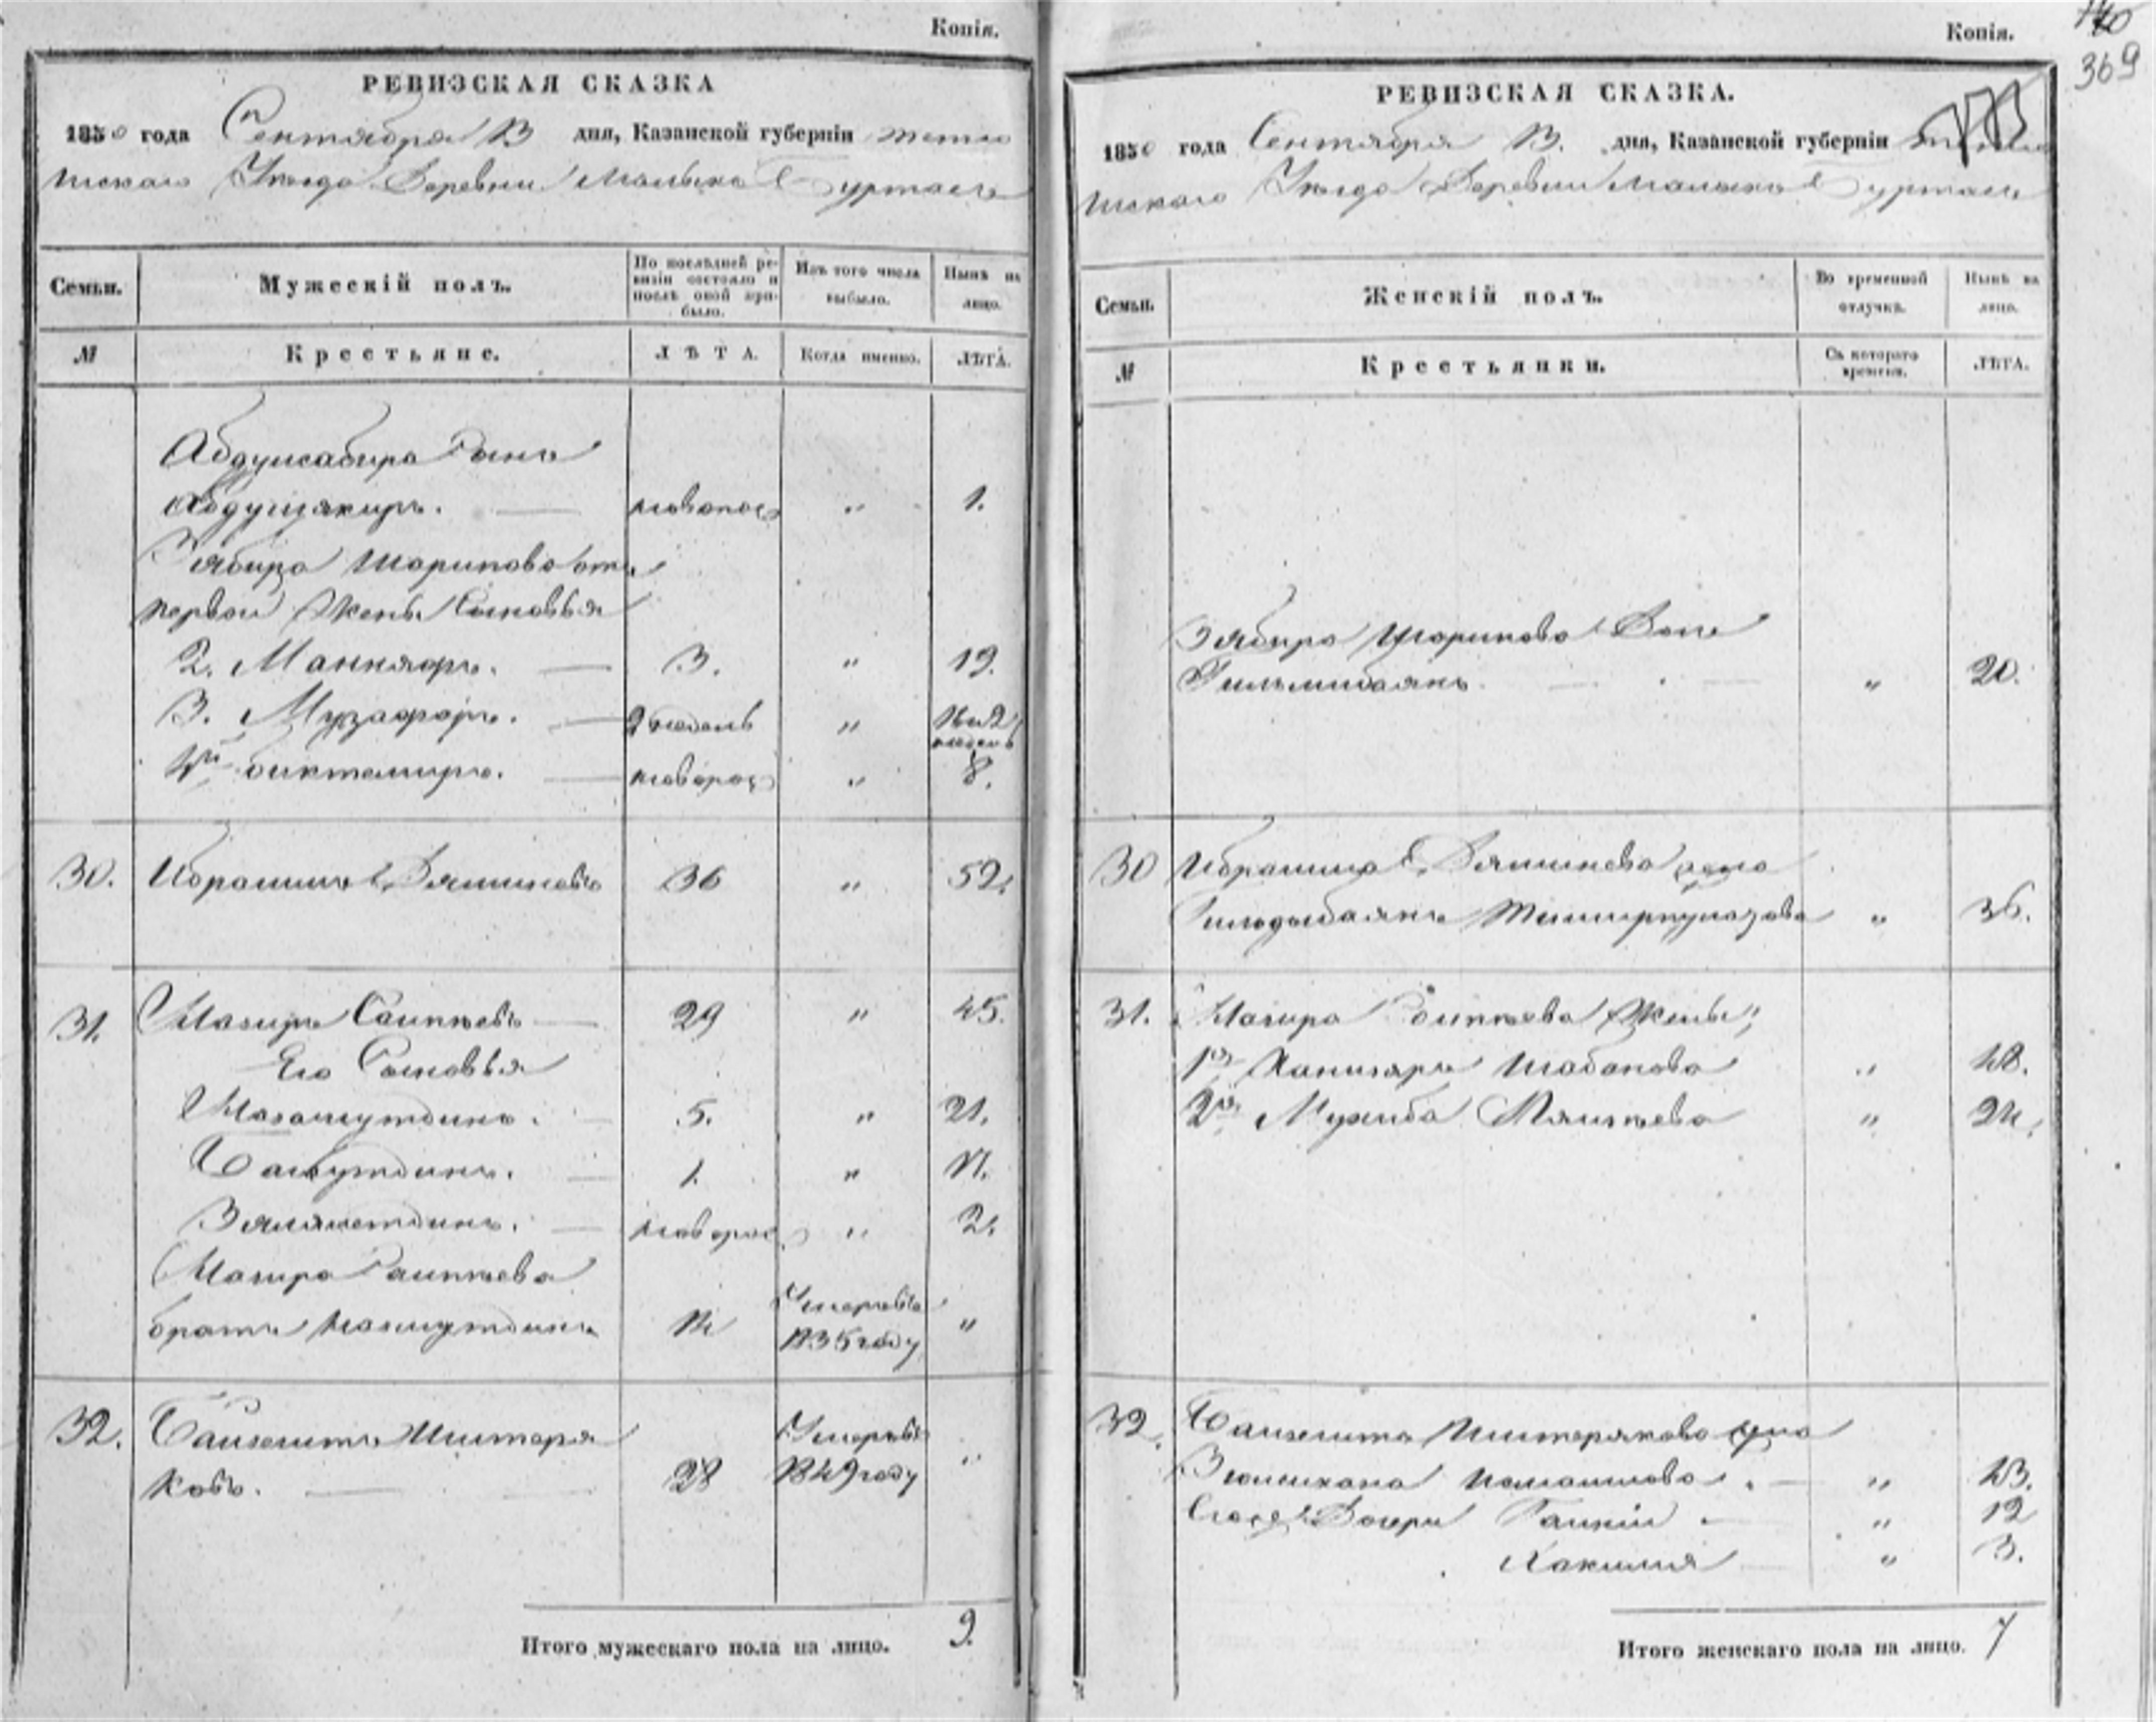 Копія.
РЕВИЗСКАЯ СКАЗКА
1850 года Сентября 13 дня, Казанской губерніи тетю
шскаго Уѣзда Деревни Малыхъ Буртасъ
Семьи.
Мужескій полъ.
По послѣдней ре-
визіи состояло и
послѣ оной при-
было.
Изъ того числа
выбыло.
Нынѣ на
лицо.
№
Крестьяне.
ЛѢТА.
Когда именно.
ЛѢТА.
Абдулсабира Сынъ
Абдулзякиръ. новорож „ 1.
Зябира Шарипова отъ
первой Жены Сыновья
2. Манняфъ. 3. „ 19.
3. Музафаръ. 2 недель „ 16 и 2
недель
4й биктимиръ. новорож „ 8.
30. Ибрагимъ Вямишевъ 36 „ 52.
31. Шагиръ Саитевъ 29 „ 45.
Его Сыновья
5. „ 21.
1. „ 17.
Зяляметдинъ. новорож „ 2.
Шагира Саитева
братъ 14 Умеръ въ
1835 году „
32. Баязитъ Иштеря
ковъ. 28 Умеръ въ
1849 году „
Итого мужескаго пола на лицо. 9.
Копія.
369
РЕВИЗСКАЯ СКАЗКА.
1850 года Сентября 13. дня, Казанской губерніи тетю
шскаго Уѣзда Деревни Малыхъ Буртасъ
Семьи.
Женскій полъ.
Во временной
отлучкѣ.
Нынѣ на
лицо.
№
Крестьянки.
Съ котораго
времени.
ЛѢТА.
Зябира Шарипова Дочь
Гильмибаянъ „ 20.
30 Ибрагима Вямишева жена
„ 36.
31. Шагира Саитева Жены
1я Ханизяръ Шабанова „ 48.
2я Мухиба „ 24.
32. Баязита Иштерякова жена
„ 43.
Дочери „ 12
Хакимя „ 3.
Итого женскаго пола на лицо. 7